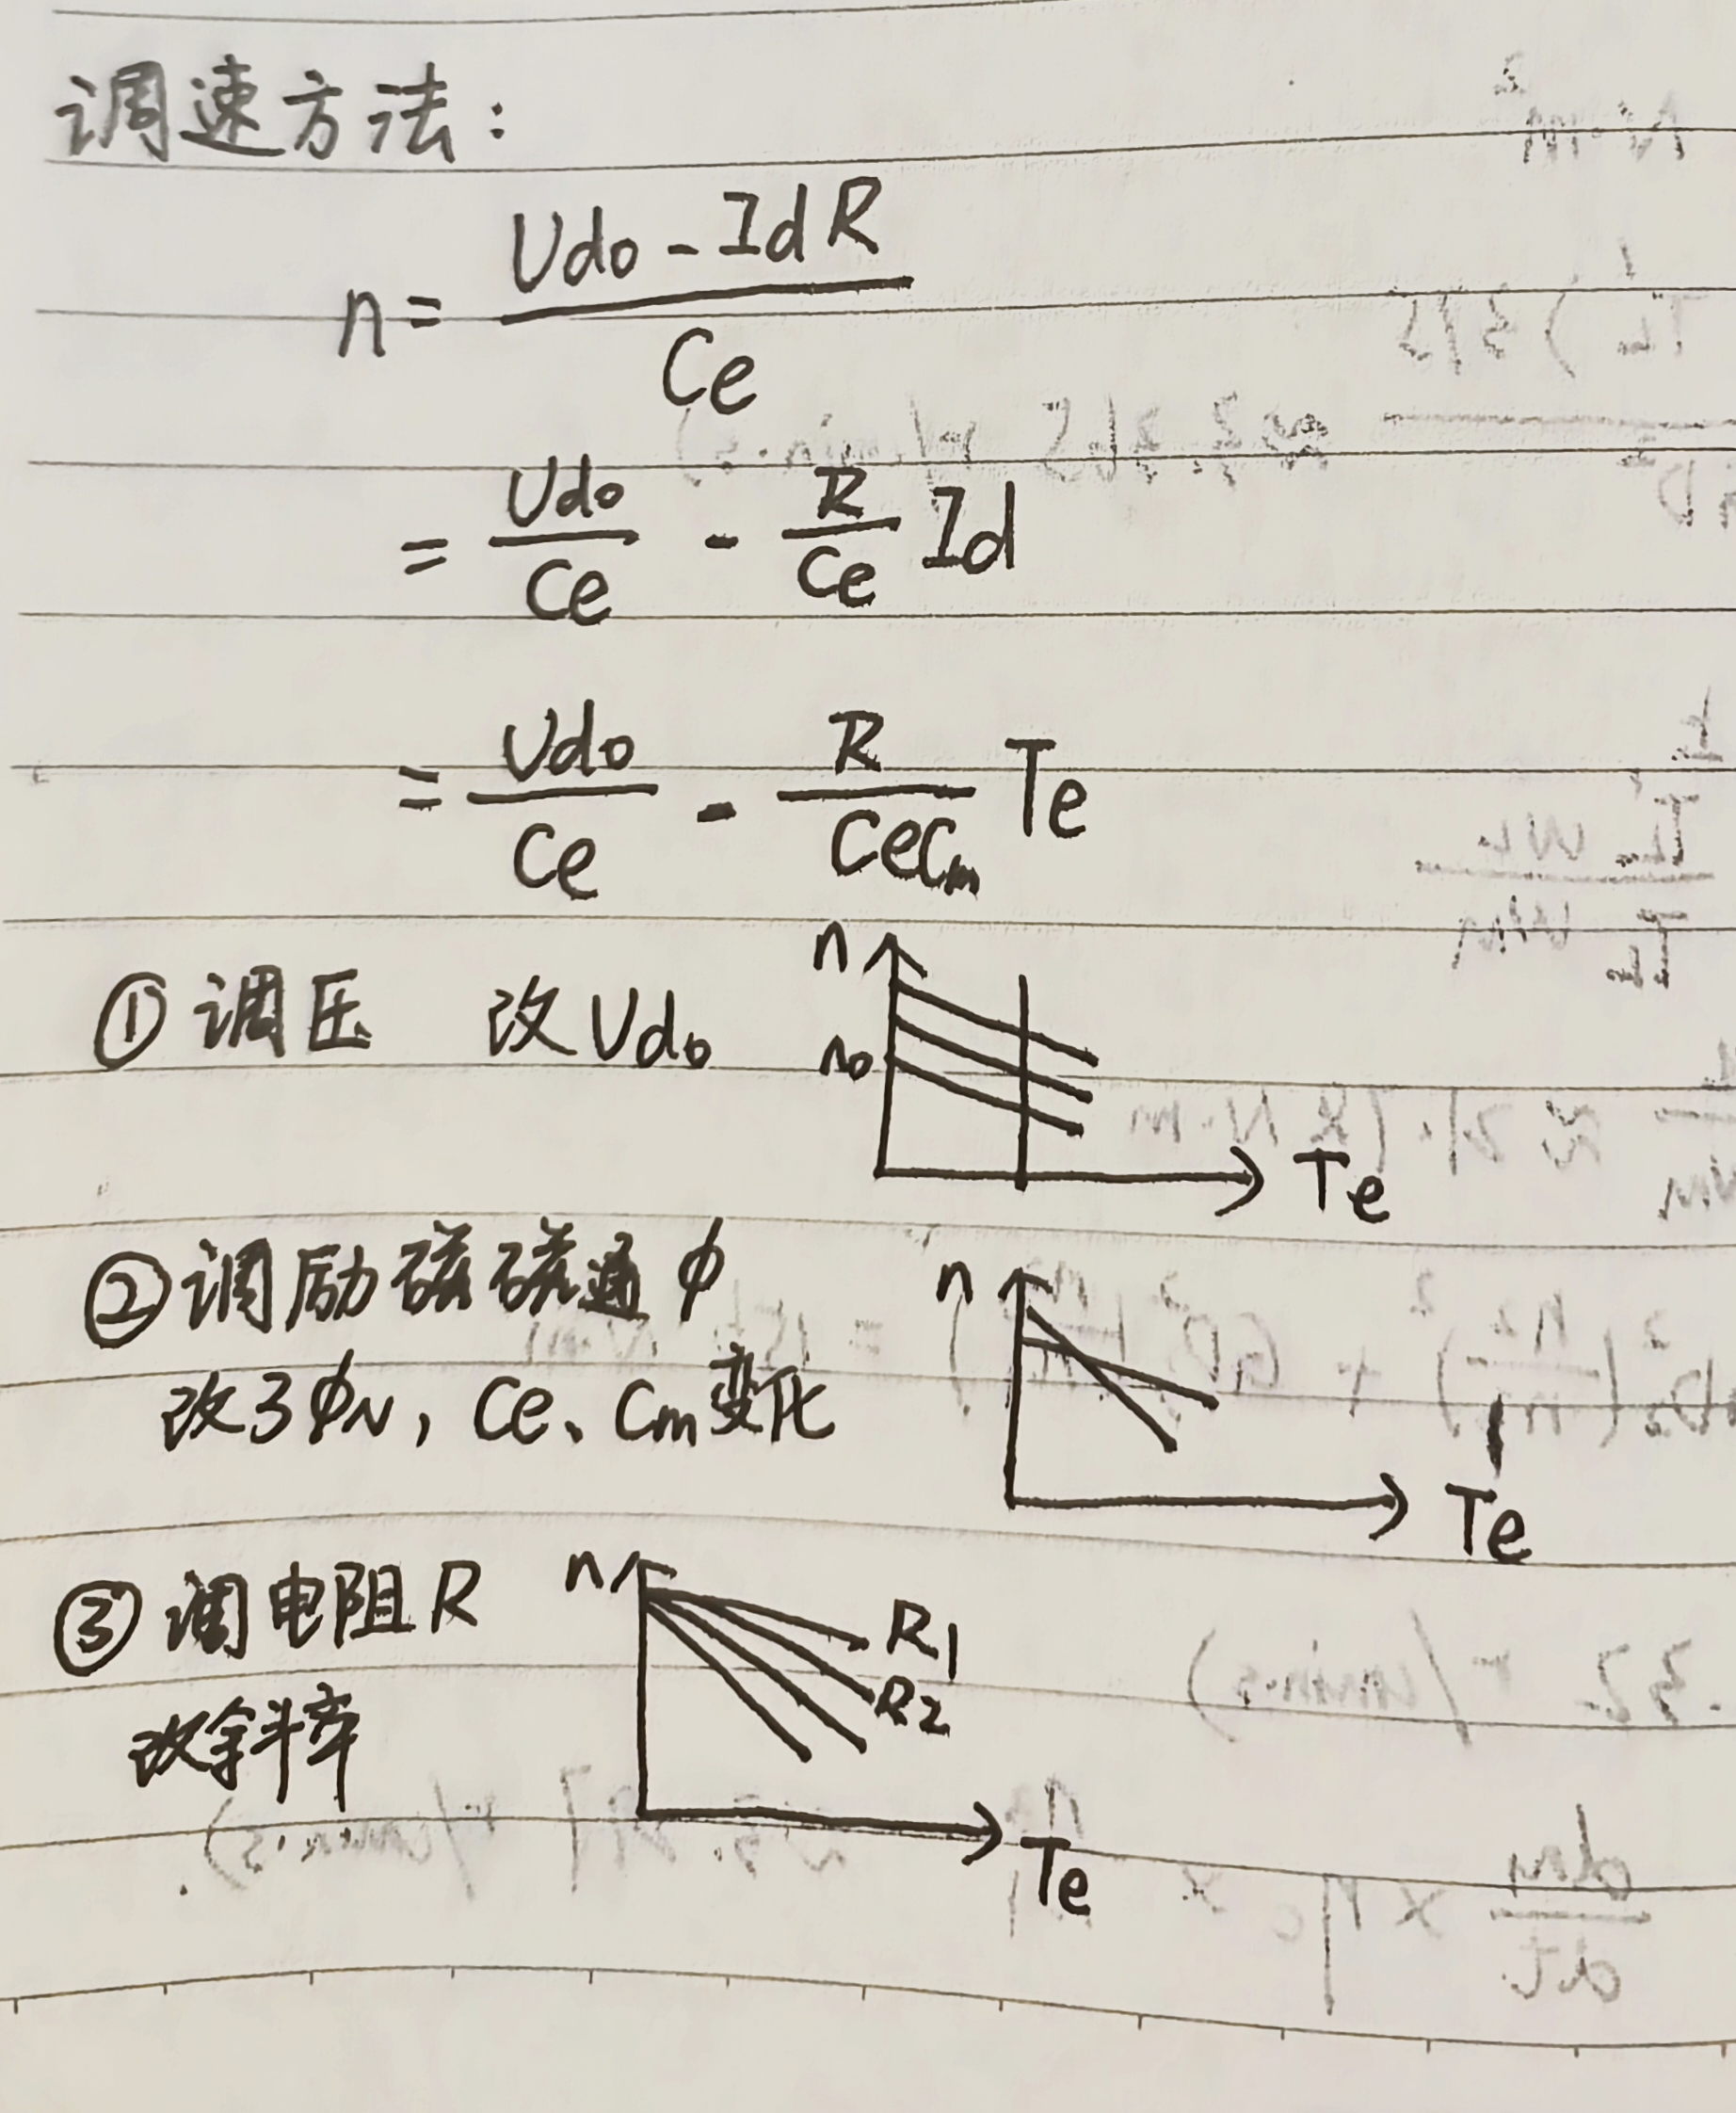 调速方法：
n = (Ud0 - IdR) / Ce
= Ud0/Ce - R/Ce Id
= Ud0/Ce - R/(CeCm) Te
① 调压 改Ud0
n
n0
Te
② 调励磁磁通 ϕ
改了ϕN，Ce、Cm变化
n
Te
③ 调电阻R
改斜率
n
R1
R2
Te